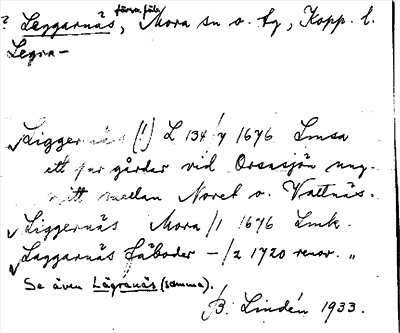 ? Leggarnäs, Mora sn o. tg, Kopp. l.
Legra-
Ligger näs (!) L 134/7 1676 Lmsa
ett par gårdar vid Orsasjön ung.
mitt mellan Noret o. Vattnäs.
Liggernäs Mora /1 1676 Lmk.
Laggarnäs fäboder -/2 1720 renov. "
Se även Lägranäs (samma).
B. Lindén 1933.